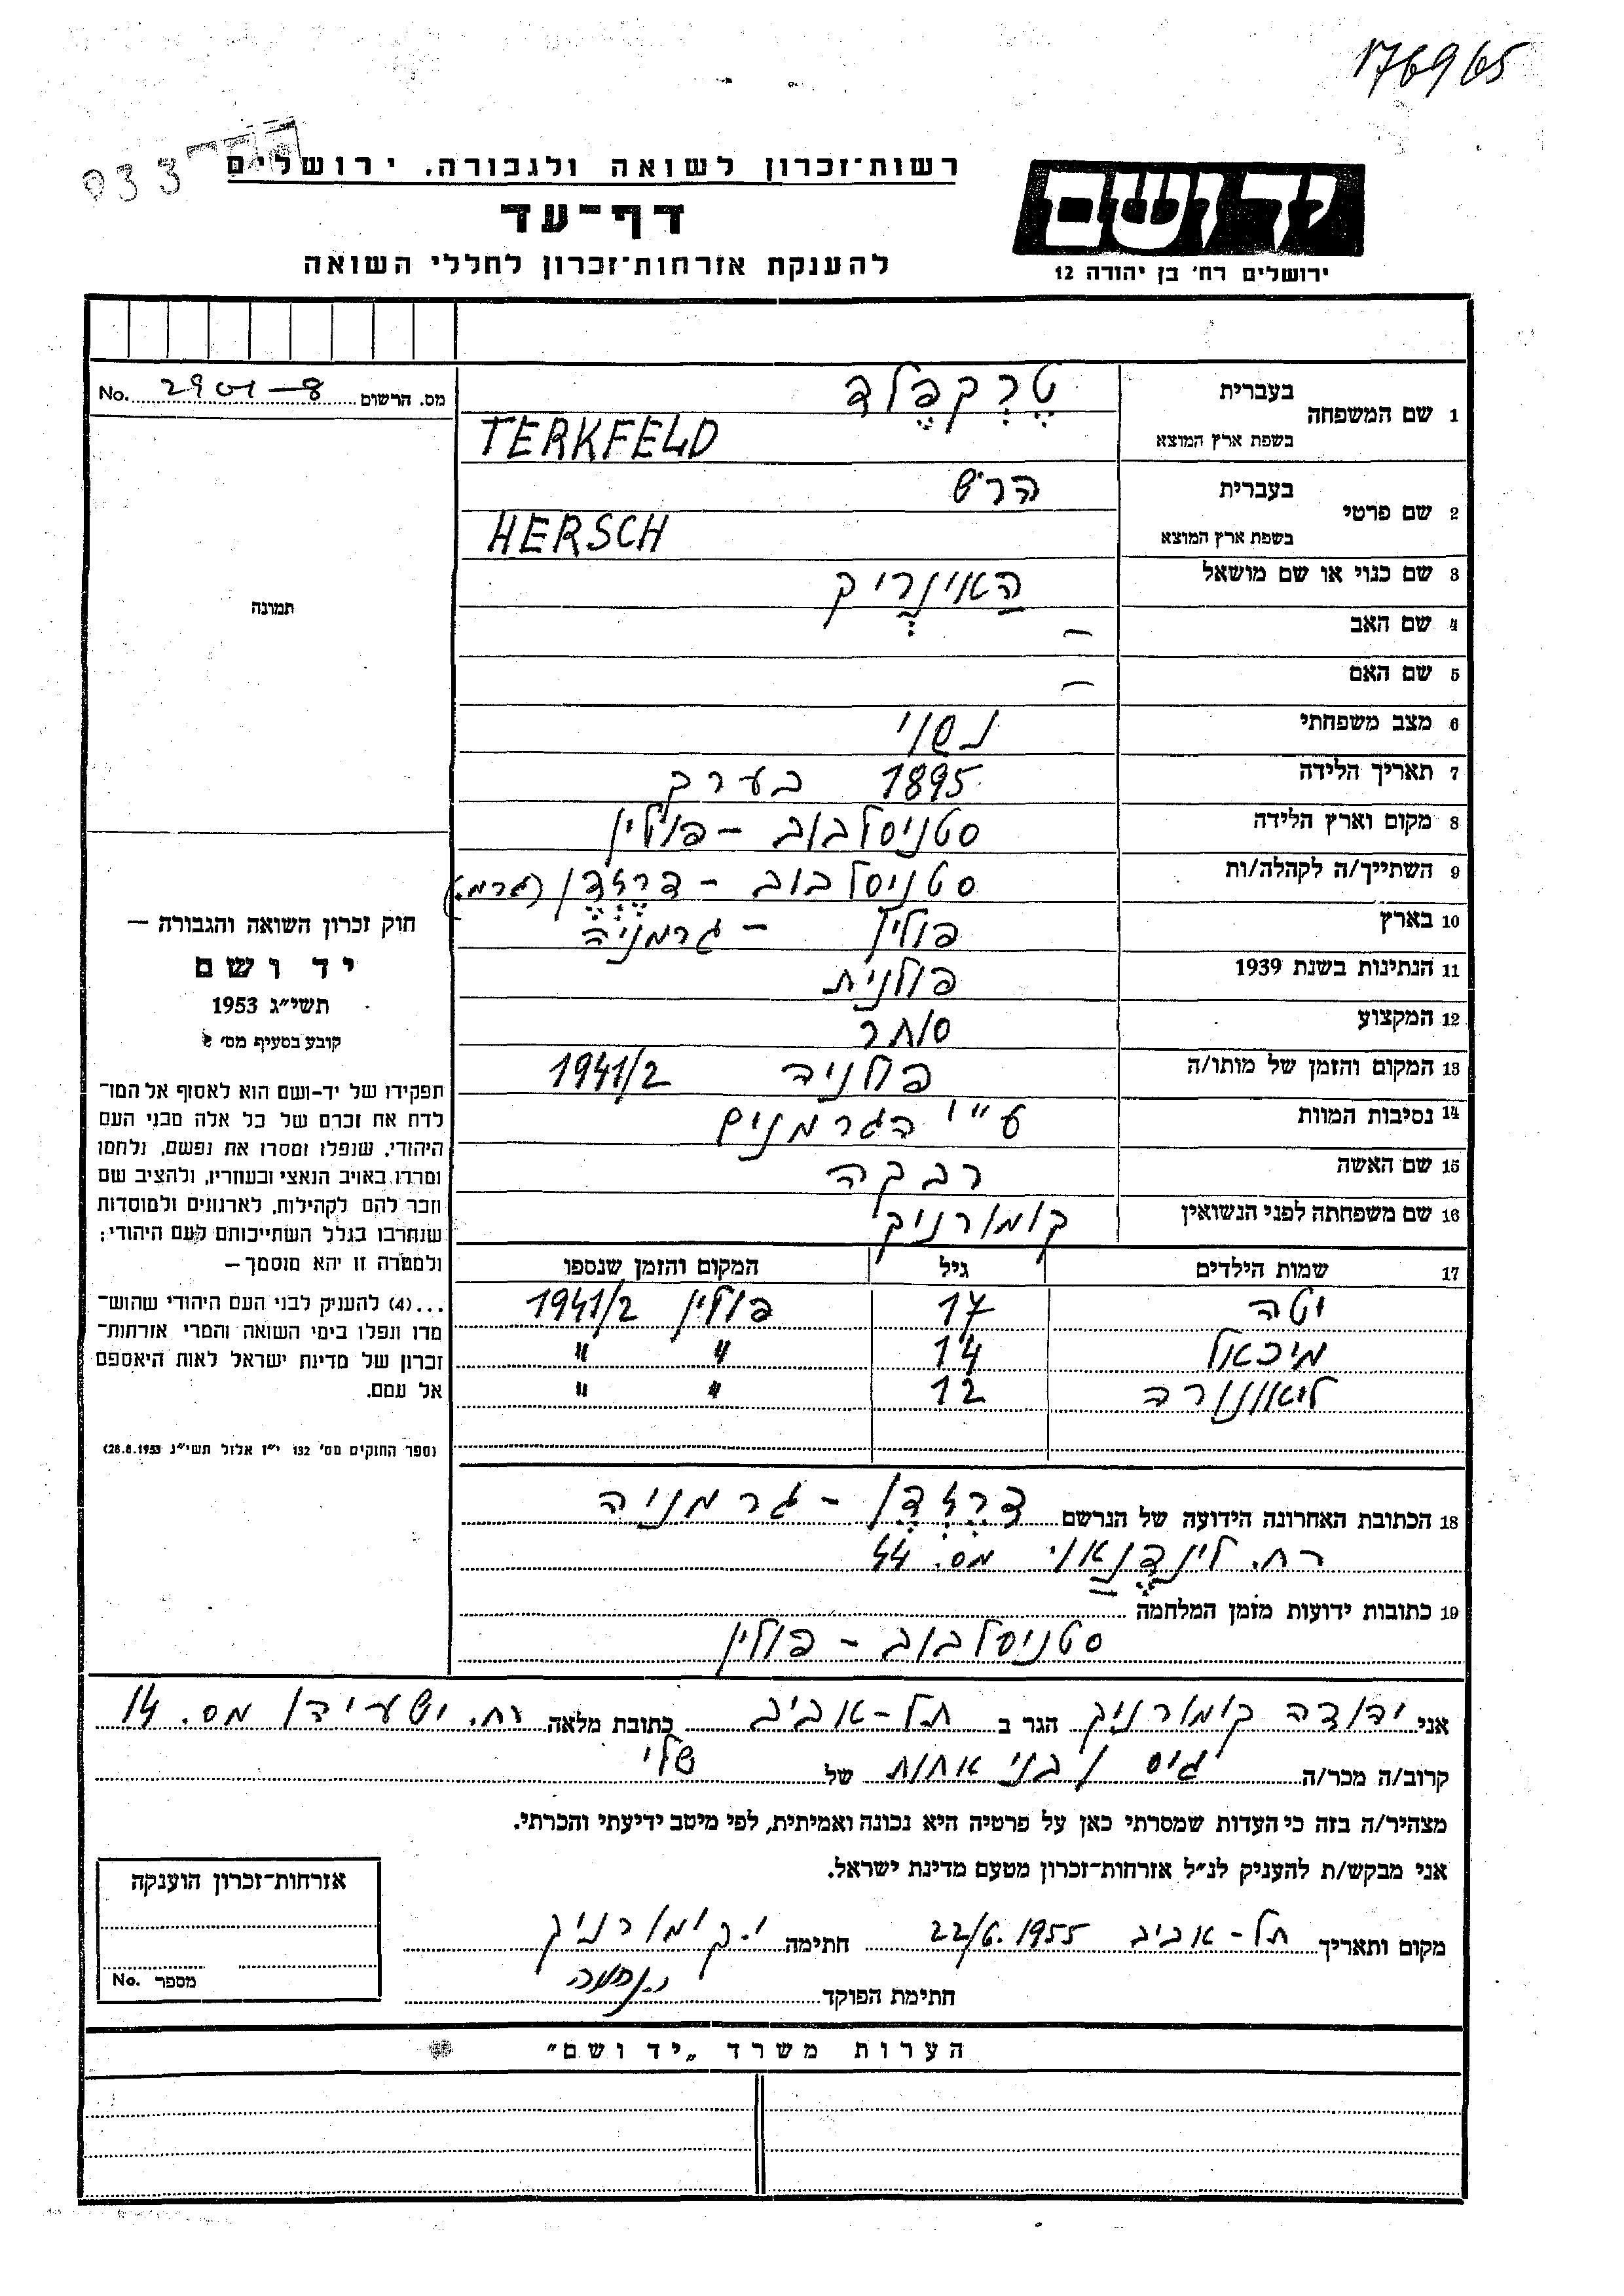 176965
רשות־זכרון לשואה ולגבורה. ירושלים
דף־עד
להענקת אזרחות־זכרון לחללי השואה
יד ושם
ירושלים רח' בן יהודה 12
933
1 שם המשפחה
בעברית טֶרְקְפֶלד
בשפת ארץ המוצא TERKFELD
2 שם פרטי
בעברית הרש
בשפת ארץ המוצא HERSCH
3 שם כנוי או שם מושאל הַאינְרִיק
4 שם האב –
5 שם האם –
6 מצב משפחתי נשוי
7 תאריך הלידה 1895 בערב
8 מקום וארץ הלידה סטניסלבוב – פולין
9 השתייך/ה לקהלה/ות סטניסלבוב – דרזדן (גרמ.)
10 בארץ פולין – גרמניה
11 הנתינות בשנת 1939 פולנית
12 המקצוע סוחר
13 המקום והזמן של מותו/ה פולניה 1941/2
14 נסיבות המוות ע"י הגרמנים
15 שם האשה רבקה
16 שם משפחתה לפני הנשואין קומורניק
17 שמות הילדים גיל המקום והזמן שנספו
יטה 17 פולין 1941/2
מיכאל 14 " "
ליאונורה 12 " "
18 הכתובת האחרונה הידועה של הנרשם דרזדן – גרמניה
רח. לינדֶנַאוי מס. 44
19 כתובות ידועות מזמן המלחמה
סטניסלבוב – פולין
מס. הרשום 2901–8 No.
תמונה
חוק זכרון השואה והגבורה –
יד ושם
תשי"ג 1953
קובע בסעיף מס' 2
תפקידו של יד-ושם הוא לאסוף אל המו־
לדת את זכרם של כל אלה מבני העם
היהודי, שנפלו ומסרו את נפשם, נלחמו
ומרדו באויב הנאצי ובעוזריו, ולהציב שם
וזכר להם לקהילות, לארגונים ולמוסדות
שנחרבו בגלל השתייכותם לעם היהודי;
ולמטרה זו יהא מוסמך –
...(4) להעניק לבני העם היהודי שהוש־
מדו ונפלו בימי השואה והמרי אזרחות־
זכרון של מדינת ישראל לאות היאספם
אל עמם.
(ספר החוקים מס' 132 י"ז אלול תשי"ג 28.8.1953)
אני יהודה קומורניק הגר ב תל-אביב כתובת מלאה רח. ישעיהו מס. 14
קרוב/ה מכר/ה גיס ובני אחות של שלי
מצהיר/ה בזה כי העדות שמסרתי כאן על פרטיה היא נכונה ואמיתית, לפי מיטב ידיעתי והכרתי.
אני מבקש/ת להעניק לנ"ל אזרחות־זכרון מטעם מדינת ישראל.
מקום ותאריך תל-אביב 22/6.1955 חתימה י. קומורניק
חתימת הפוקד
אזרחות־זכרון הוענקה
מספר No.
הערות משרד „יד ושם"